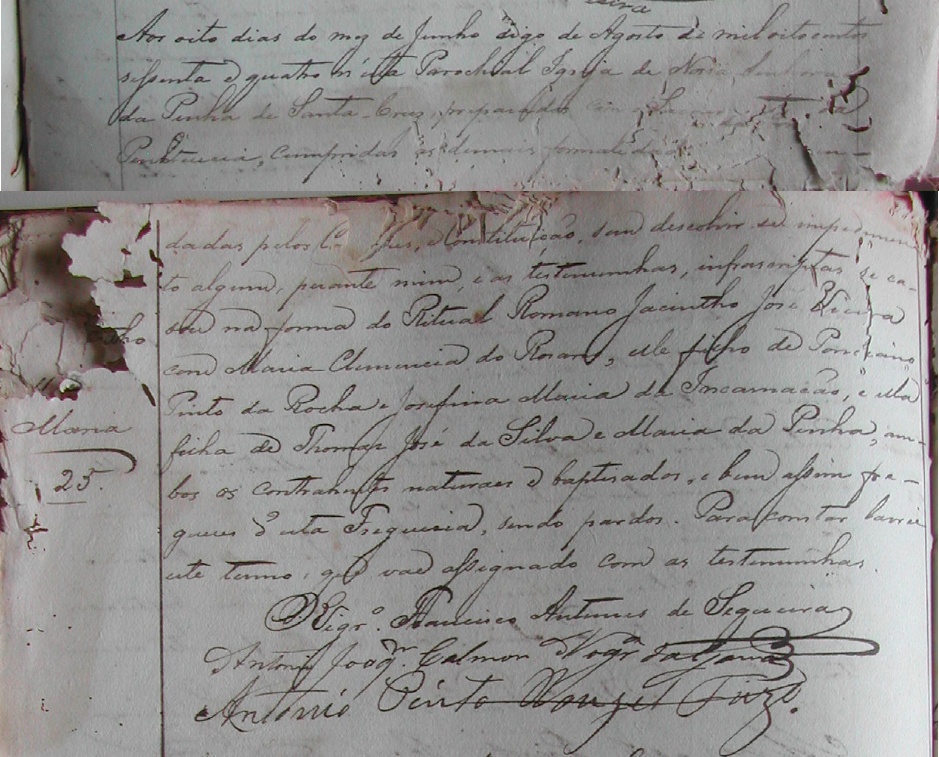 Aos oito dias do mez de Junho digo de Agosto de mil oito centos
sessenta e quatro n'esta Parochial Igreja de Nossa Senhora
da Penha de Santa Cruz, preparados com
Penitencia, cumpridas as demais formalidades
dadas pelos Constituição, sem descobrir se impedimen
to algum, perante mim, e as testemunhas, infrascriptas se ca-
sou na forma do Ritual Romano Jacintho José Vieira
cho
com Maria Clemencia do Rosario, elle filho de Ponciano
Pinto da Rocha e Josefina Maria da Incarnacão, e ella
Maria
filha de Thomaz José da Silva e Maria da Penha, am-
25.
bos os contrahentes naturaes e baptisados, e bem assim fre-
gueses d'esta Freguesia, sendo pardos. Para constar lavrei
este termo, que vae assignado com as testemunhas.
Vigr.º Francisco Antunes de Sequeira
Antonio Joaqm. Calmon Nogra da Gama
Antonio Pinto